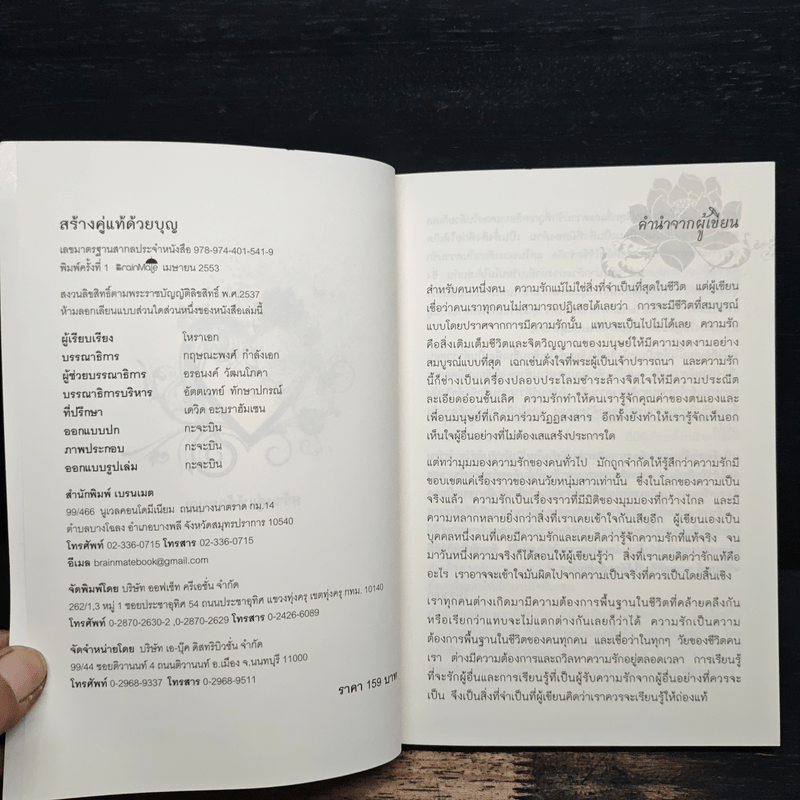 สร้างคู่แท้ด้วยบุญ
เลขมาตรฐานสากลประจำหนังสือ 978-974-401-541-9
พิมพ์ครั้งที่ 1 BrainMate เมษายน 2553
สงวนลิขสิทธิ์ตามพระราชบัญญัติลิขสิทธิ์ พ.ศ.2537
ห้ามลอกเลียนแบบส่วนใดส่วนหนึ่งของหนังสือเล่มนี้
ผู้เรียบเรียง โหราเอก
บรรณาธิการ กฤษณะพงศ์ กำลังเอก
ผู้ช่วยบรรณาธิการ อรอนงค์ วัฒนโภคา
บรรณาธิการบริหาร อัตตเวทย์ ทักษาปกรณ์
ที่ปรึกษา เดวิด อะบราฮัมเซน
ออกแบบปก กะจะบิน
ภาพประกอบ กะจะบิน
ออกแบบรูปเล่ม กะจะบิน
สำนักพิมพ์ เบรนเมต
99/466 นูเวลคอนโดมีเนียม ถนนบางนาตราด กม.14
ตำบลบางโฉลง อำเภอบางพลี จังหวัดสมุทรปราการ 10540
โทรศัพท์ 02-336-0715 โทรสาร 02-336-0715
อีเมล brainmatebook@gmail.com
จัดพิมพ์โดย บริษัท ออฟเซ็ท ครีเอชั่น จำกัด
262/1,3 หมู่ 1 ซอยประชาอุทิศ 54 ถนนประชาอุทิศ แขวงทุ่งครุ เขตทุ่งครุ กทม. 10140
โทรศัพท์ 0-2870-2630-2 ,0-2870-2629 โทรสาร 0-2426-6089
จัดจำหน่ายโดย บริษัท เอ-บุ๊ค ดิสทริบิวชั่น จำกัด
99/44 ซอยติวานนท์ 4 ถนนติวานนท์ อ.เมือง จ.นนทบุรี 11000
โทรศัพท์ 0-2968-9337 โทรสาร 0-2968-9511
ราคา 159 บาท
คำนำจากผู้เขียน
สำหรับคนหนึ่งคน ความรักแม้ไม่ใช่สิ่งที่จำเป็นที่สุดในชีวิต แต่ผู้เขียน
เชื่อว่าคนเราทุกคนไม่สามารถปฏิเสธได้เลยว่า การจะมีชีวิตที่สมบูรณ์
แบบโดยปราศจากการมีความรักนั้น แทบจะเป็นไปไม่ได้เลย ความรัก
คือสิ่งเติมเต็มชีวิตและจิตวิญญาณของมนุษย์ให้มีความงดงามอย่าง
สมบูรณ์แบบที่สุด เฉกเช่นดั่งใจที่พระผู้เป็นเจ้าปรารถนา และความรัก
นี้ก็ช่างเป็นเครื่องปลอบประโลมชำระล้างจิตใจให้มีความประณีต
ละเอียดอ่อนขั้นเลิศ ความรักทำให้คนเรารู้จักคุณค่าของตนเองและ
เพื่อนมนุษย์ที่เกิดมาร่วมวัฏฏสงสาร อีกทั้งยังทำให้เรารู้จักเห็นอก
เห็นใจผู้อื่นอย่างที่ไม่ต้องเสแสร้งประการใด
แต่ทว่ามุมมองความรักของคนทั่วไป มักถูกจำกัดให้รู้สึกว่าความรักมี
ขอบเขตแค่เรื่องราวของคนวัยหนุ่มสาวเท่านั้น ซึ่งในโลกของความเป็น
จริงแล้ว ความรักเป็นเรื่องราวที่มีมิติของมุมมองที่กว้างไกล และมี
ความหลากหลายยิ่งกว่าสิ่งที่เราเคยเข้าใจกันเสียอีก ผู้เขียนเองเป็น
บุคคลหนึ่งคนที่เคยมีความรักและเคยคิดว่ารู้จักความรักที่แท้จริง จน
มาวันหนึ่งความจริงก็ได้สอนให้ผู้เขียนรู้ว่า สิ่งที่เราเคยคิดว่ารักแท้คือ
อะไร เราอาจจะเข้าใจมันผิดไปจากความเป็นจริงที่ควรเป็นโดยสิ้นเชิง
เราทุกคนต่างเกิดมามีความต้องการพื้นฐานในชีวิตที่คล้ายคลึงกัน
หรือเรียกว่าแทบจะไม่แตกต่างกันเลยก็ว่าได้ ความรักเป็นความ
ต้องการพื้นฐานในชีวิตของคนทุกคน และเชื่อว่าในทุกๆ วัยของชีวิตคน
เรา ต่างมีความต้องการและถวิลหาความรักอยู่ตลอดเวลา การเรียนรู้
ที่จะรักผู้อื่นและการเรียนรู้ที่เป็นผู้รับความรักจากผู้อื่นอย่างที่ควรจะ
เป็น จึงเป็นสิ่งที่จำเป็นที่ผู้เขียนคิดว่าเราควรจะเรียนรู้ให้ถ่องแท้